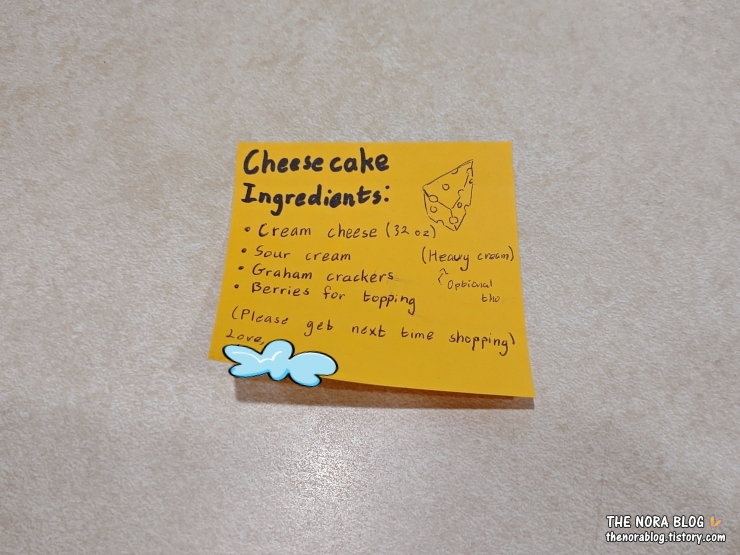 Cheesecake
Ingredients:
• Cream cheese (32 oz)
• Sour cream
(Heavy cream)
• Graham crackers
Optional
tho
• Berries for topping
(Please get next time shopping)
Love,
THE NORA BLOG
thenorablog.tistory.com